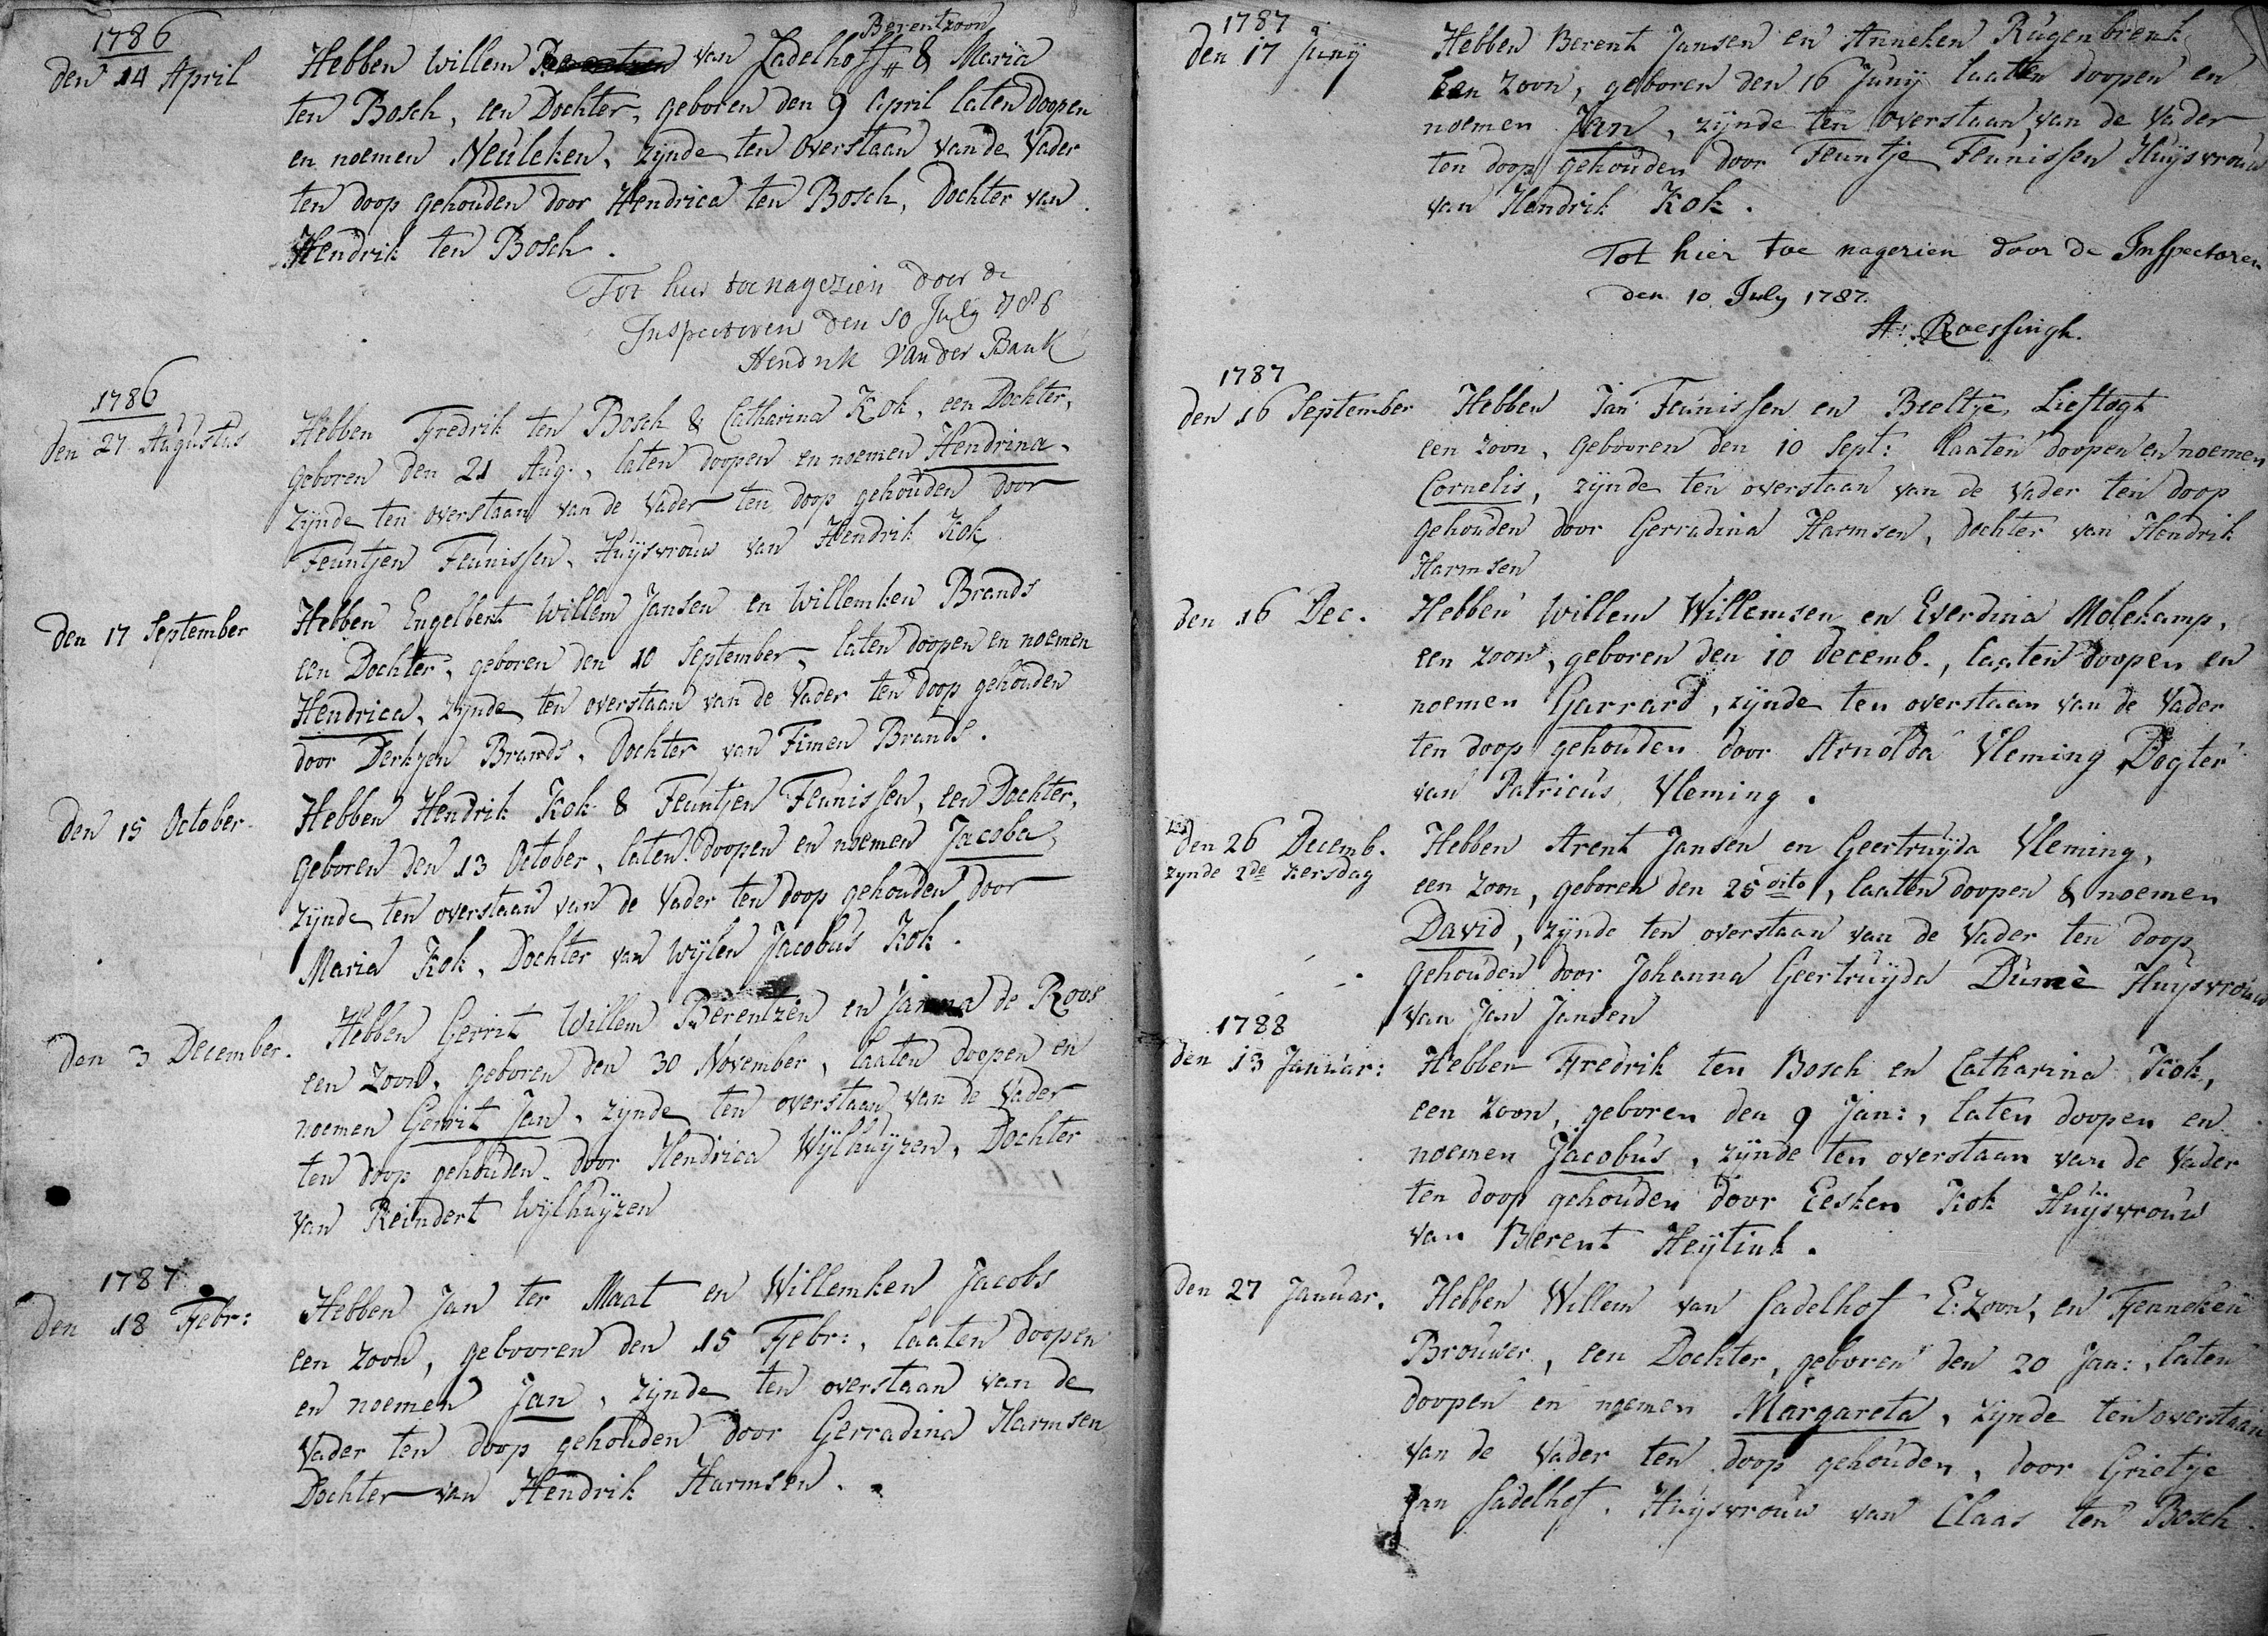 1786
den 14 April
Berentzoon
Hebben Willem van Zadelhoff & Maria
ten Bosch, een Dochter, geboren den 9 April laten doopen
en noemen Neuleken, zijnde ten overstaan van de Vader
ten doop gehouden door Hendrica ten Bosch, Dochter van
Hendrik ten Bosch.
Tot hier toe nagezien door de
Inspectoren den 10 July 1786
Hendrik van der Bank
1786
den 27 Augustus
Hebben Fredrik ten Bosch & Catharina Kok, een Dochter,
geboren den 21 Aug., laten doopen en noemen Hendrina,
zijnde ten overstaan van de Vader ten doop gehouden door
Teuntjen Teunissen, Huijsvrouw van Hendrik Kok
den 17 September
Hebben Engelbert Willem Jansen en Willemken Brands
een Dochter, geboren den 10 September, laten doopen en noemen
Hendrica, zijnde ten overstaan van de Vader ten doop gehouden
door Derkjen Brands, Dochter van Timen Brands.
den 15 October
Hebben Hendrik Kok & Teuntjen Teunissen, een Dochter,
geboren den 13 October, laten doopen en noemen Jacoba,
zijnde ten overstaan van de Vader ten doop gehouden door
Maria Kok, Dochter van wijlen Jacobus Kok.
den 3 December.
Hebben Gerrit Willem Berentzen en Janna de Roos
een Zoon, geboren den 30 November, laaten doopen en
noemen Gerrit Jan, zijnde ten overstaan van de Vader
ten doop gehouden door Hendrica Wijlhuijzen, Dochter
van Reindert Wijlhuijzen
1787
den 18 Febr:
Hebben Jan ter Maat en Willemken Jacobs
een Zoon, gebooren den 15 Febr:, laaten doopen
en noemen Jan, zijnde ten overstaan van de
Vader ten doop gehouden door Gerradina Harmsen
Dochter van Hendrik Harmsen.
1787
den 17 Junij
Hebben Berent Jansen en Anneken Rugenbrenk
Een Zoon, geboren den 16 Junij laaten doopen en
noemen Jan, zijnde ten overstaan van de Vader
ten doop gehouden door Teuntje Teunissen Huijsvrouw
van Hendrik Kok.
Tot hier toe nagezien door de Inspectoren
den 10 July 1787.
A: Roessingh.
1787
den 16 September
Hebben Jan Teunissen en Beeltje Lieftogt
een Zoon, gebooren den 10 Sept: laaten doopen en noemen
Cornelis, zijnde ten overstaan van de Vader ten doop
gehouden door Gerradina Harmsen, dochter van Hendrik
Harmsen
den 16 Dec.
Hebben Willem Willemsen en Everdina Molekamp,
een Zoon, geboren den 10 decemb., laaten doopen en
noemen Garrard, zijnde ten overstaan van de Vader
ten doop gehouden door Arnolda Vleming Dogter
van Patricus Vleming.
den 26 Decemb.
zynde 2de kersdag
Hebben Arent Jansen en Geertruijda Vleming,
een Zoon, geboren den 25 dito, laaten doopen & noemen
David, zijnde ten overstaan van de Vader ten doop
gehouden door Johanna Geertruijda Dumè Huijsvrouw
van Jan Jansen
1788
den 13 Januar:
Hebben Fredrik ten Bosch en Catharina Kok,
een Zoon, geboren den 9 Jan:, laten doopen en
noemen Jacobus, zijnde ten overstaan van de Vader
ten doop gehouden door Eesken Kok Huijsvrouw
van Berent Heijtink.
den 27 Januar.
Hebben Willem van Sadelhof E: Zoon, en Fenneken
Brouwer, een Dochter, geboren den 20 Jan:, laten
doopen en noemen Margareta, zijnde ten overstaan
van de Vader ten doop gehouden, door Grietje
van Sadelhof, Huijsvrouw van Claas ten Bosch.